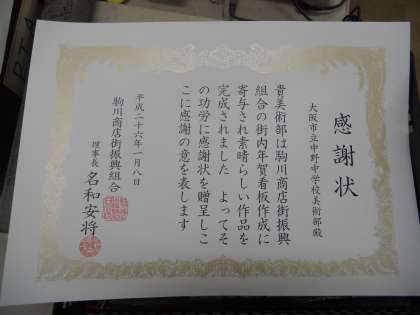 感謝状
大阪市立中野中学校美術部殿
貴美術部は駒川商店街振興
組合の街内年賀看板作成に
寄与され素晴らしい作品を
完成されました よってそ
の功労に感謝状を贈呈しこ
こに感謝の意を表します
平成二十六年一月八日
駒川商店街振興組合
理事長 名和安将